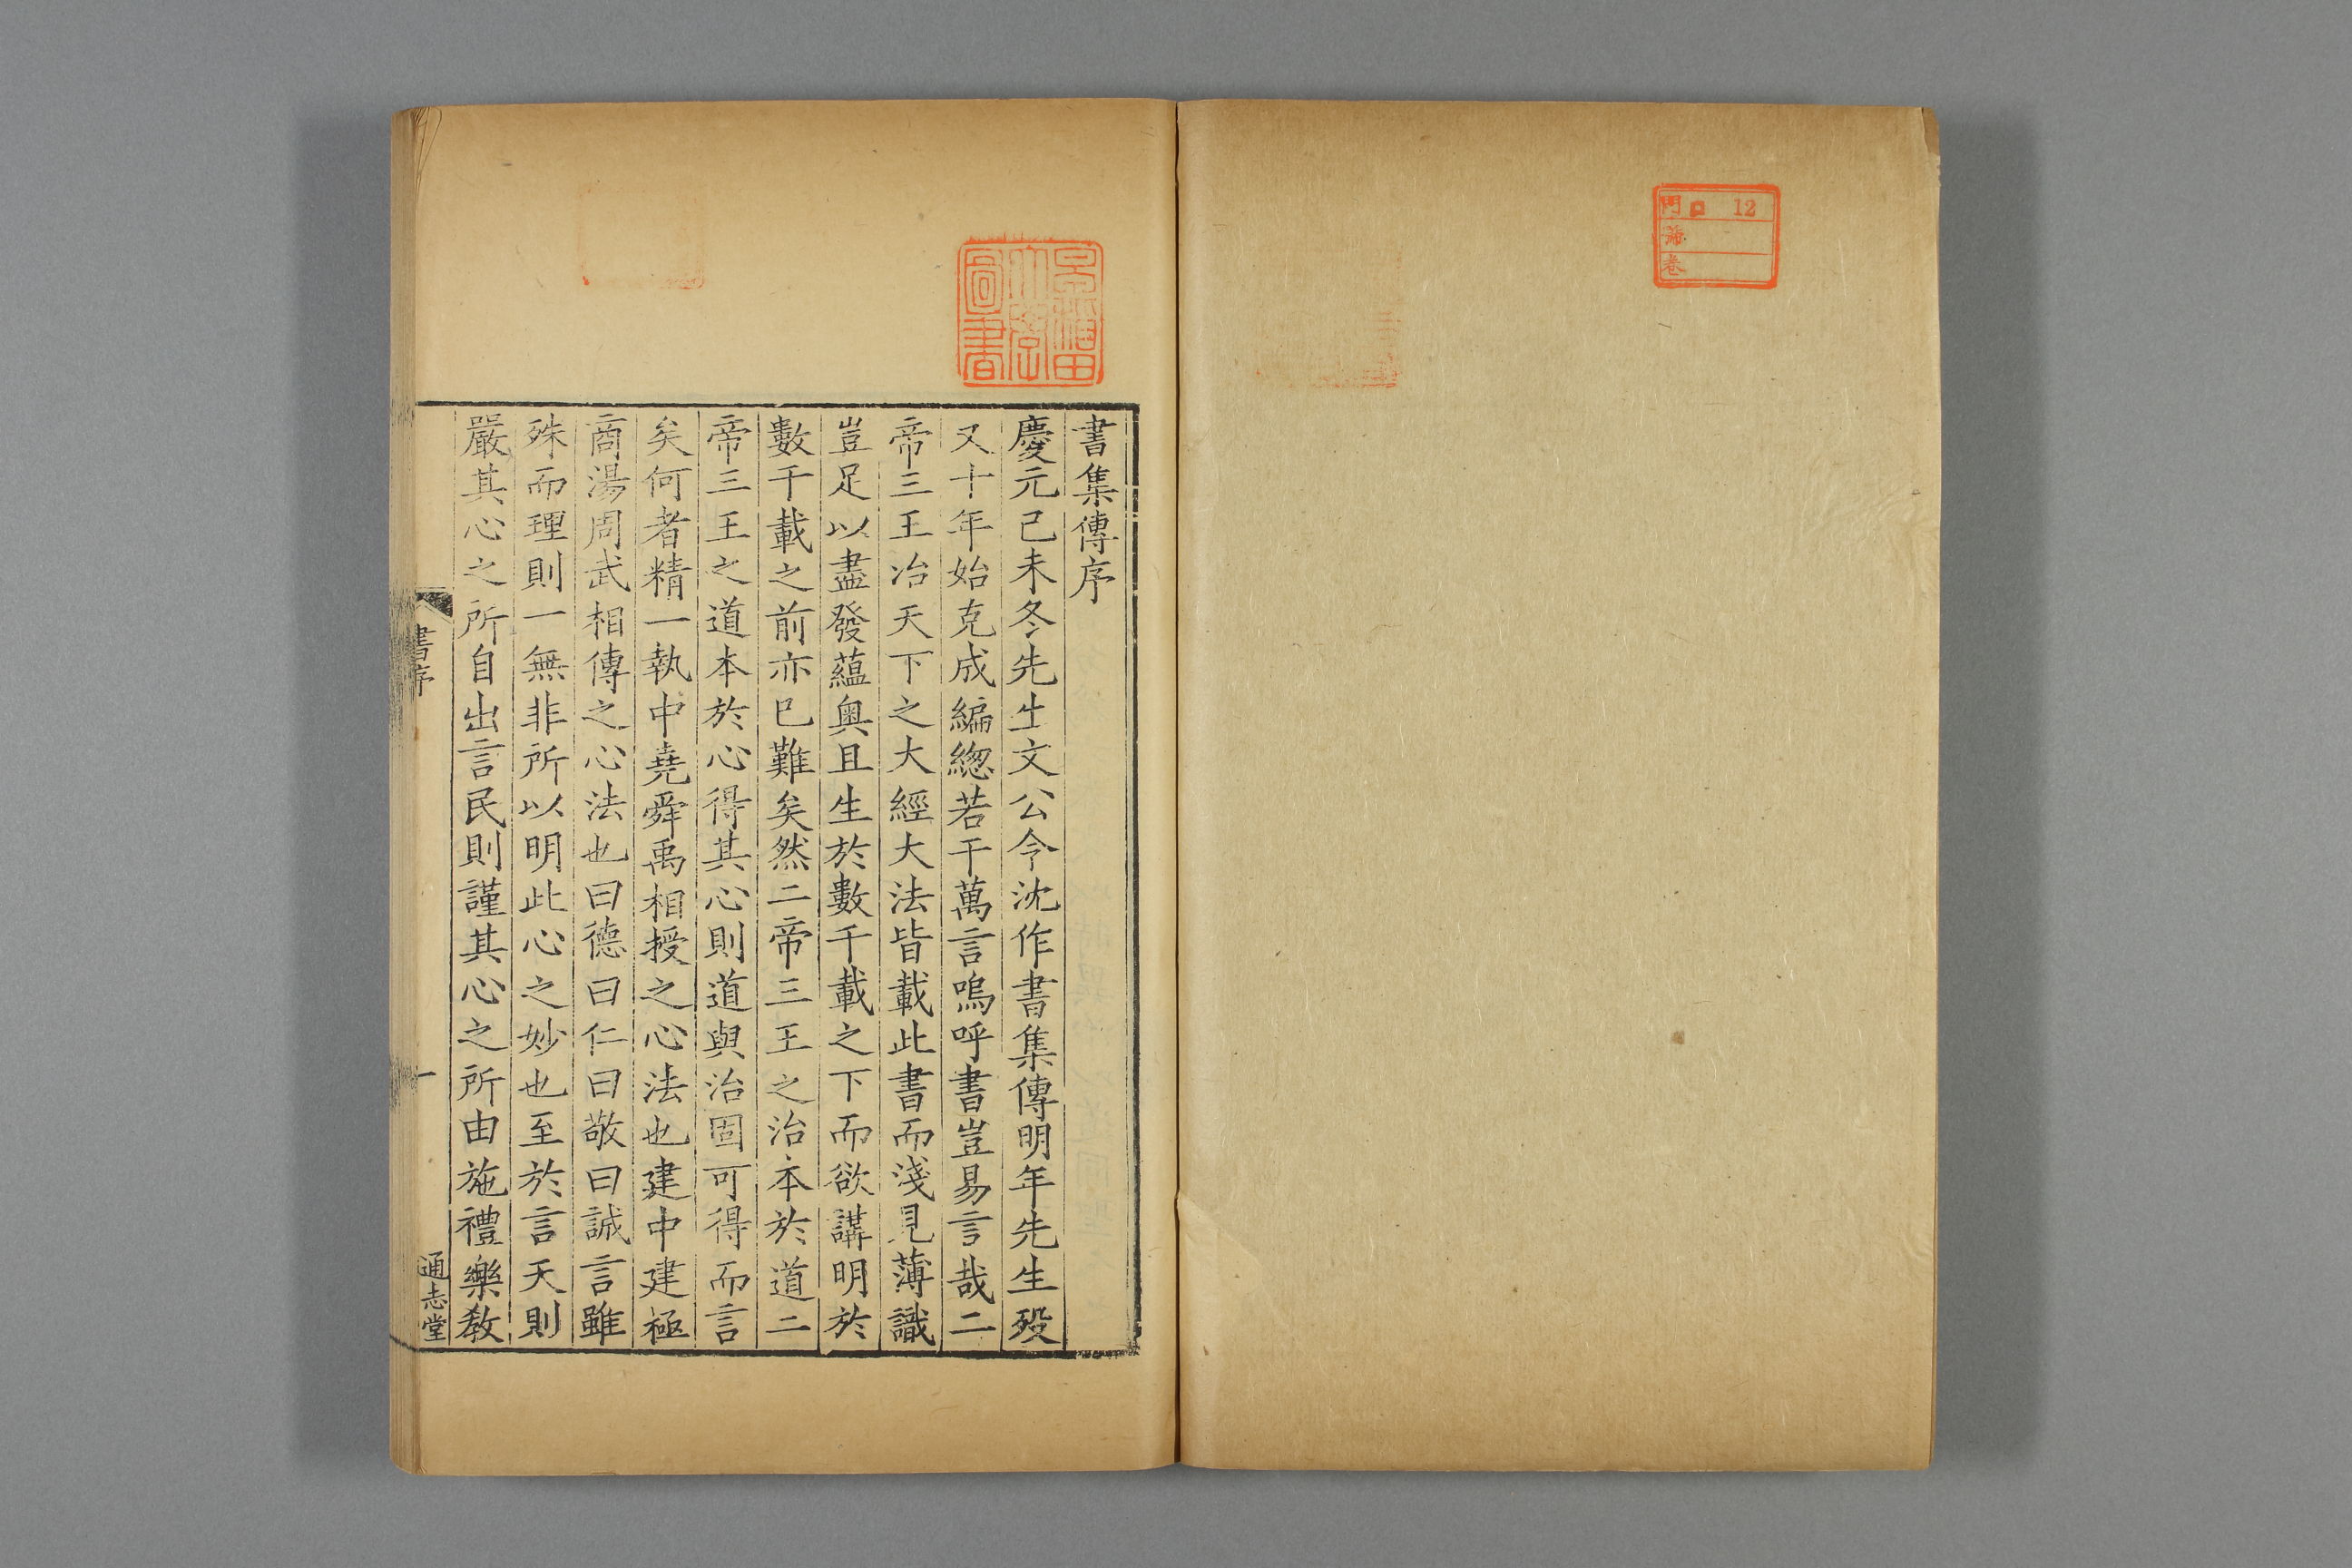 門 口 12
號
卷
早稲田
大學
圖書
書集傳序
慶元己未冬先生文公令沈作書集傳明年先生歿
又十年始克成編緫若干萬言嗚呼書豈易言哉二
帝三王治天下之大經大法皆載此書而淺見薄識
豈足以盡發蘊奥且生於數千載之下而欲講明於
數千載之前亦已難矣然二帝三王之治本於道二
帝三王之道本於心得其心則道與治固可得而言
矣何者精一執中堯舜禹相授之心法也建中建極
商湯周武相傳之心法也曰德曰仁曰敬曰誠言雖
殊而理則一無非所以明此心之妙也至於言天則
嚴其心之所自出言民則謹其心之所由施禮樂教
書序
一
通志堂